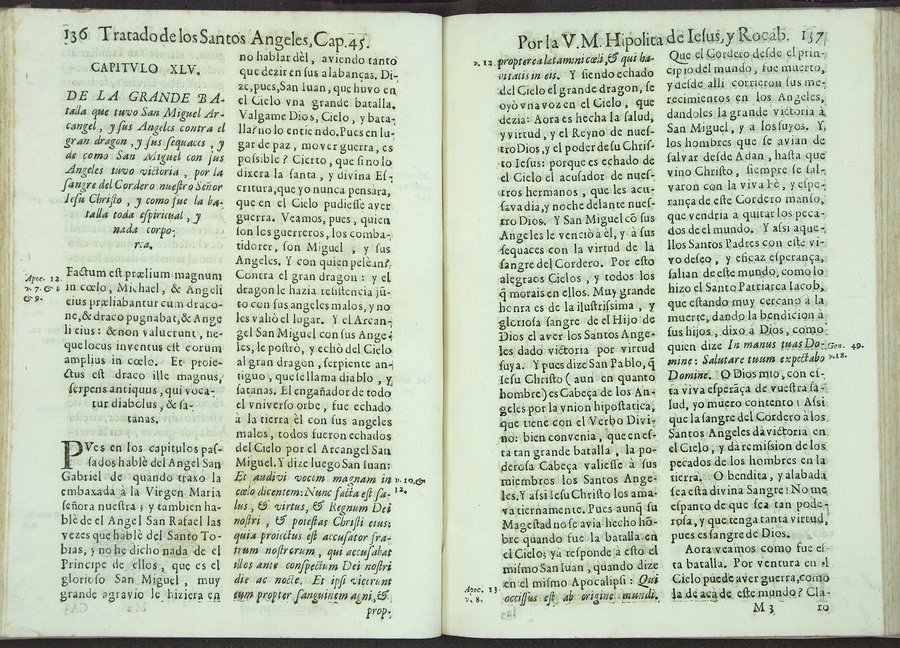 136 Tratado de los Santos Angeles, Cap. 45.
CAPITVLO XLV.
DE LA GRANDE BA-
talla que tuvo San Miguel Ar-
cangel, y sus Angeles contra el
gran dragon, y sus sequaces, y
de como San Miguel con sus
Angeles tuvo victoria, por la
sangre del Cordero nuestro Señor
Iesu Christo, y como fue la ba-
talla toda espiritual, y
nada corpo-
rea.
Apoc. 12.
v. 7. & 8
& 9.
Factum est prælium magnum
in cœlo, Michael, & Angeli
eius præliabantur cum draco-
ne, & draco pugnabat, & Ange
li eius: & non valuerunt, ne-
que locus inventus est eorum
amplius in cœlo. Et proie-
ctus est draco ille magnus,
serpens antiquus, qui voca-
tur diabolus, & sa-
tanas.
PVes en los capitulos pas-
sados hablè del Angel San
Gabriel de quando traxo la
embaxada à la Virgen Maria
señora nuestra; y tambien ha-
blè de el Angel San Rafael las
vezes que hablè del Santo To-
bias, y no he dicho nada de el
Principe de ellos, que es el
glorioso San Miguel, muy
grande agravio le hiziera en
no hablar dèl, aviendo tanto
que dezir en sus alabanças. Di-
ze, pues, San Iuan, que huvo en
el Cielo vna grande batalla.
Valgame Dios, Cielo, y bata-
lla? no lo entiendo. Pues en lu-
gar de paz, mover guerra, es
possible? Cierto, que si no lo
dixera la santa, y divina Es-
critura, que yo nunca pensàra,
que en el Cielo pudiesse aver
guerra. Veamos, pues, quien
son los guerreros, los comba-
tidores, son Miguel, y sus
Angeles. Y con quien peleàn?
Contra el gran dragon: y el
dragon le hazia resistencia jũ-
to con sus angeles malos, y no
les valiò el lugar. Y el Arcan-
gel San Miguel con sus Ange-
les, le postrò, y echò del Cielo
al gran dragon, serpiente an-
tiguo, que se llama diablo, y
satanas. El engañador de todo
el vniverso orbe, fue echado
à la tierra èl con sus angeles
malos, todos fueron echados
del Cielo por el Arcangel San
Miguel. Y dize luego San Iuan:
Et audivi vocem magnam in
cœlo dicentem: Nunc facta est sa-
lus, & virtus, & Regnum Dei
nostri, & potestas Christi eius:
quia proiectus est accusator fra-
trum nostrorum, qui accusabat
illos ante conspectum Dei nostri
die ac nocte. Et ipsi vicerunt
eum propter sanguinem agni, &
v. 10. &
12.
prop-
Por la V. M. Hipolita de Iesus, y Rocab. 137
v. 12.
propterea lætamini cœli, & qui ha-
bitatis in eis. Y siendo echado
del Cielo el grande dragon, se
oyò vna voz en el Cielo, que
dezia: Aora es hecha la salud,
y virtud, y el Reyno de nues-
tro Dios, y el poder de su Chris-
to Iesus: porque es echado de
el Cielo el acusador de nues-
tros hermanos, que les acu-
sava dia, y noche delante nues-
tro Dios. Y San Miguel cõ sus
Angeles le venciò à el, y à sus
sequaces con la virtud de la
sangre del Cordero. Por esto
alegraos Cielos, y todos los
q̃ morais en ellos. Muy grande
honra es de la ilustrissima, y
gloriosa sangre de el Hijo de
Dios el aver los Santos Ange-
les dado victoria por virtud
suya. Y pues dize San Pablo, q̃
Iesu Christo (aun en quanto
hombre) es Cabeça de los An-
geles por la vnion hipostatica,
que tiene con el Verbo Divi-
no: bien convenia, que en es-
ta tan grande batalla, la po-
derosa Cabeça valiesse à sus
miembros los Santos Ange-
les. Y assi Iesu Christo los ama-
va tiernamente. Pues aunq̃ su
Magestad no se avia hecho hõ-
bre quando fue la batalla en
el Cielo; ya responde à esto el
mismo San Iuan, quando dize
en el mismo Apocalipsi: Qui
occissus est ab origine mundi.
Apoc. 13.
v. 8.
Que el Cordero desde el prin-
cipio del mundo, fue muerto,
y desde alli corrieron sus me-
recimientos en los Angeles,
dandoles la grande victoria à
San Miguel, y à los suyos. Y,
los hombres que se avian de
salvar desde Adan, hasta que
vino Christo, siempre se sal-
varon con la viva Fè, y espe-
rança de este Cordero manso,
que vendria a quitar los peca-
dos de el mundo. Y assi aque-
llos Santos Padres con este vi-
vo deseo, y eficaz esperança,
salian de este mundo, como lo
hizo el Santo Patriarca Iacob,
que estando muy cercano à la
muerte, dando la bendicion à
sus hijos, dixo à Dios, como
quien dize In manus tuas Do-
mine: Salutare tuum expectabo
Domine. O Dios mio, con es-
ta viva esperãça de vuestra sa-
lud, yo muero contento! Assi
que la sangre del Cordero à los
Santos Angeles da victoria en
el Cielo, y da remission de los
pecados de los hombres en la
tierra. O bendita, y alabada
sea esta divina Sangre! No me
espanto de que sea tan pode-
rosa, y que tenga tanta virtud,
pues es sangre de Dios.
Gen. 49.
v. 18.
Aora veamos como fue es-
ta batalla. Por ventura en el
Cielo puede aver guerra, como
la de acà de este mundo? Cla-
M 3 ro